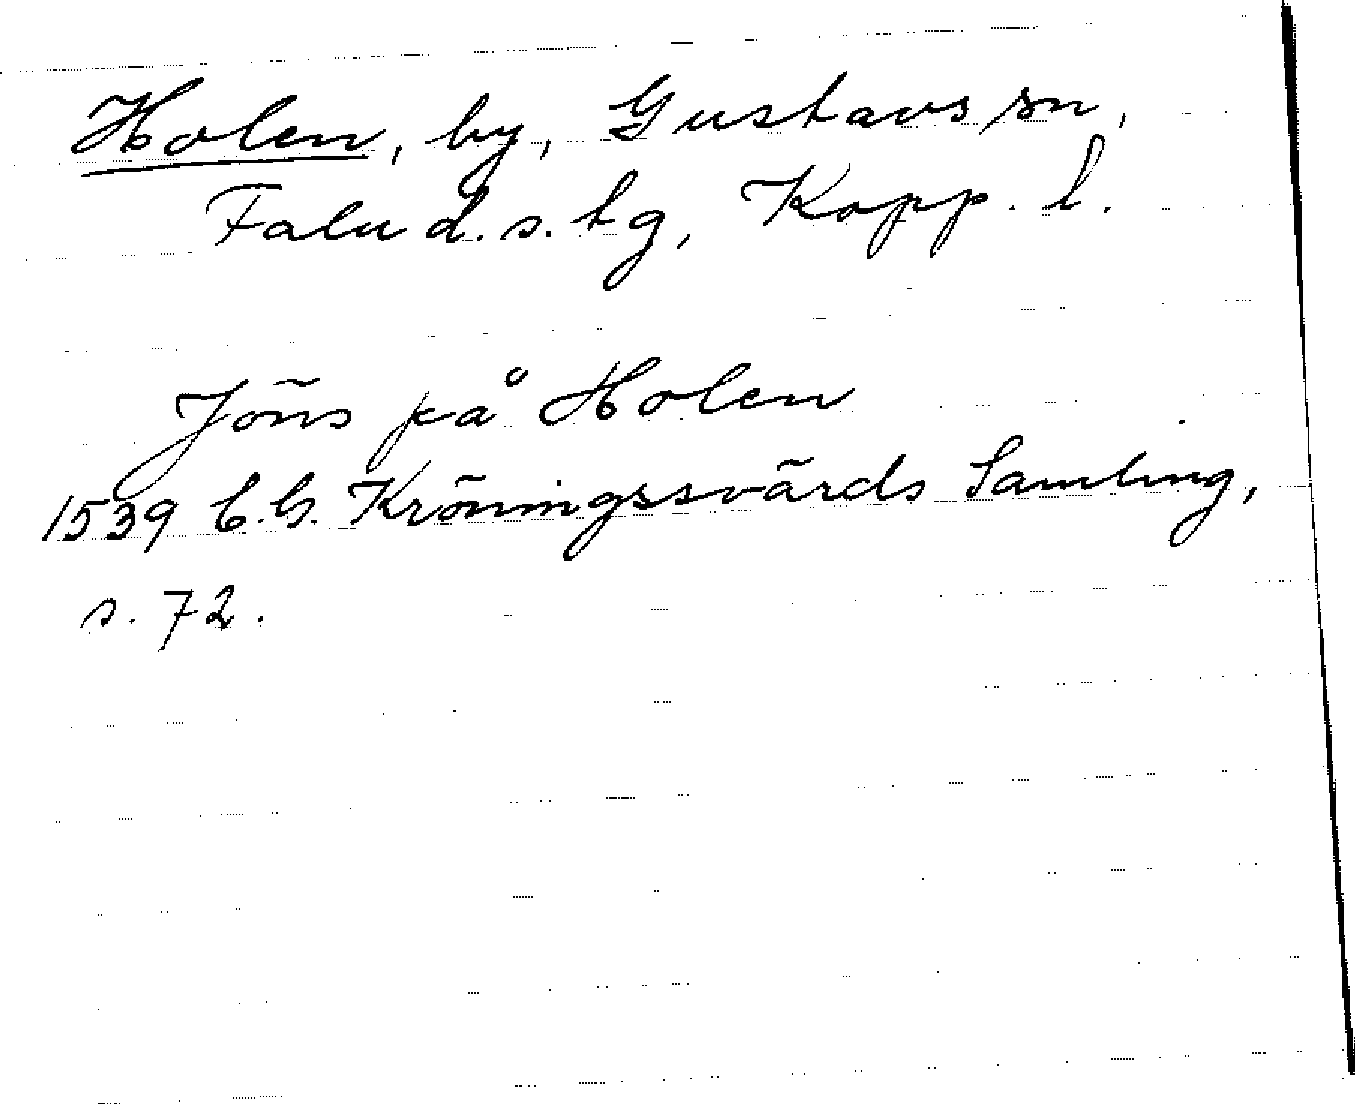 Holen, by, Gustavs sn,
Falu d.s. tg, Kopp. l.
Jöns på Holen
1539 C.G. Kröningssvärds Samling,
s. 72.